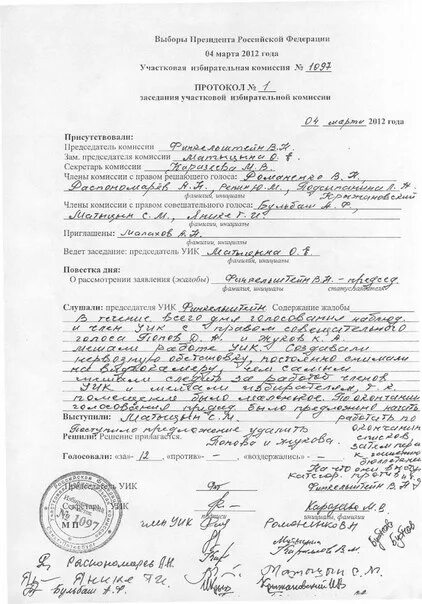 Выборы Президента Российской Федерации
04 марта 2012 года
Участковая избирательная комиссия № 1097
ПРОТОКОЛ № 1
заседания участковой избирательной комиссии
04 марта 2012 года
Присутствовали:
Председатель комиссии Финкельштейн В.Н.
Зам. председателя комиссии Матыцина О.Е.
Секретарь комиссии Каразеева М.В.
Члены комиссии с правом решающего голоса: Романенко В.Н.,
Распономарёв А.Н., Крыжановский
фамилии, инициалы
Члены комиссии с правом совещательного голоса: Бульбаш А.Ф.,
Матыцин С.М., Янике Т.И.
фамилии, инициалы
Приглашены: Малахов А.Н.
фамилии, инициалы
Ведет заседание: председатель УИК Матыцина О.Е
фамилия, инициалы
Повестка дня:
О рассмотрении заявления (жалобы) Финкельштейн В.Н. - председ
фамилия, инициалы статус заявителя
Слушали: председателя УИК Финкельштейн. Содержание жалобы
В течение всего дня голосования наблюд.
и член УИК с правом совещательного
голоса Попов Д.А. и Жуков К.А.
мешали работе УИК. Создавали
нервозную обстановку, постоянно снимали
на видеокамеру, чем самым
мешали следить за работой членов
УИК и мешали избирателям, т.к.
помещение было маленькое. По окончании
голосования председ. было предложено начать
Выступили: Матыцин С.М. работать по
Поступило предложение удалить окончании
Решили: Решение прилагается. Попова и Жукова. списков
затем перейти
Голосовали: «за» 12 «против» – «воздержались» –
к гашению
бюллетеней
На что они выступ.
категор. против
Председатель УИК Финкельштейн В.Н.
Секретарь УИК Каразеева М.В.
фамилия, инициалы
№ 1097
члн УИК Романенко В.Н
Распономарев А.Н.
Янике Т.И. Матыцин С.М.
Бульбаш А.Ф. Крыжановский И.В.